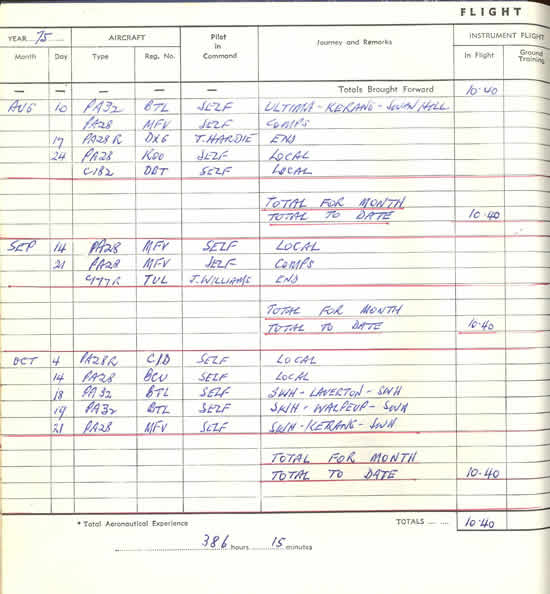 FLIGHT
YEAR 75 AIRCRAFT Pilot in Command Journey and Remarks INSTRUMENT FLIGHT
Month Day Type Reg. No. In Flight Ground Training
— — — — — Totals Brought Forward 10.40
AUG 10 PA32 BTL SELF ULTIMA - KERANG - SWAN HILL
PA28 MFV SELF COMPS
17 PA28R DXG T. HARDIE END
24 PA28 ROO SELF LOCAL
C182 DDT SELF LOCAL
TOTAL FOR MONTH
TOTAL TO DATE 10.40
SEP 14 PA28 MFV SELF LOCAL
21 PA28 MFV SELF COMPS
TUL J. WILLIAMS END
TOTAL FOR MONTH
TOTAL TO DATE 10.40
OCT 4 PA28R CID SELF LOCAL
14 PA28 BCU SELF LOCAL
18 PA32 BTL SELF SWH - LAVERTON - SWH
19 PA32 BTL SELF SWH - WALPEUP - SWH
21 PA28 MFV SELF SWH - KERANG - SWH
TOTAL FOR MONTH
TOTAL TO DATE 10.40
* Total Aeronautical Experience TOTALS ... ... 10.40
386 hours 15 minutes